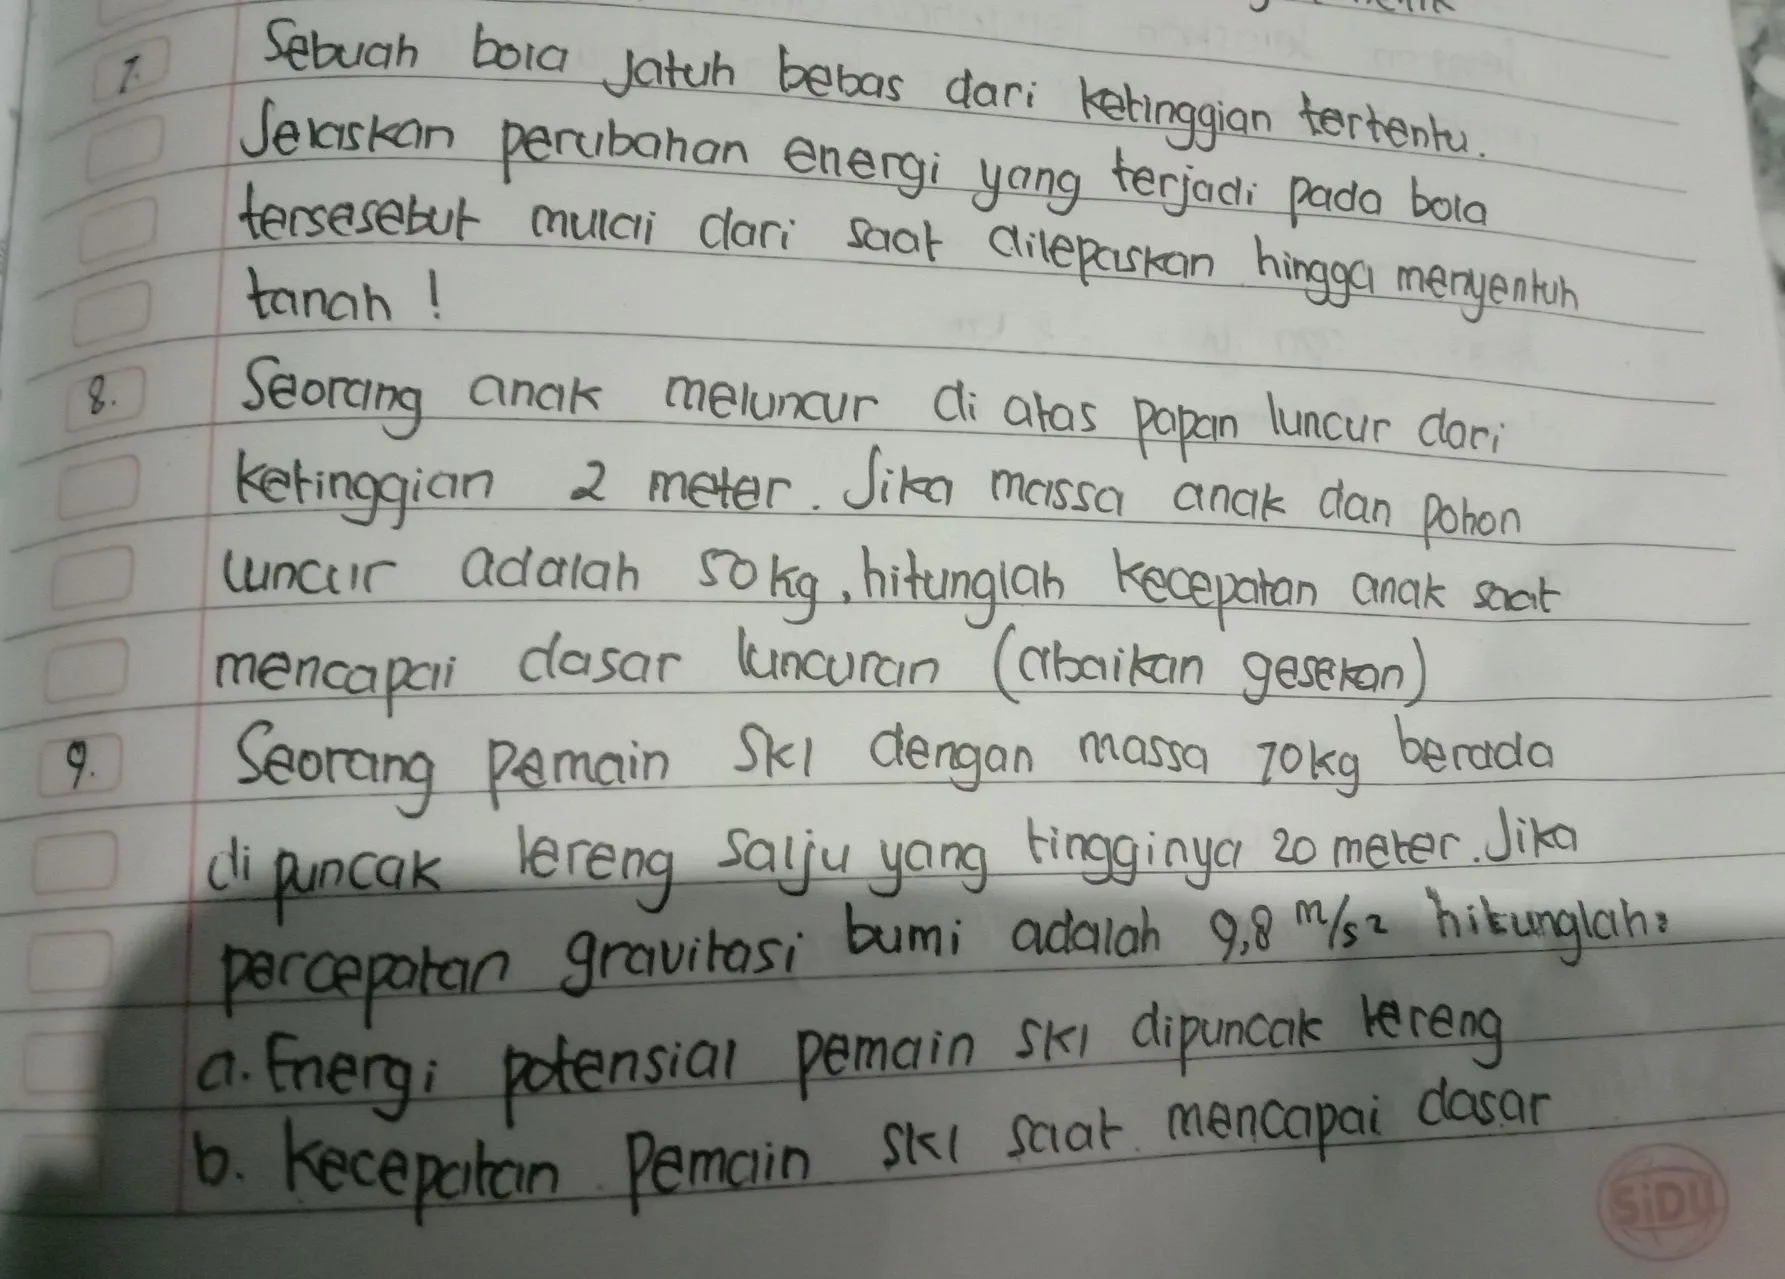 7. Sebuah bola jatuh bebas dari ketinggian tertentu.
Jelaskan perubahan energi yang terjadi pada bola
tersesebut mulai dari saat dilepaskan hingga menyentuh
tanah !
8. Seorang anak meluncur di atas papan luncur dari
ketinggian 2 meter. Jika massa anak dan pohon
luncur adalah 50 kg, hitunglah kecepatan anak saat
mencapai dasar luncuran (abaikan gesekan)
9. Seorang pemain SKI dengan massa 70kg berada
di puncak lereng salju yang tingginya 20 meter. Jika
percepatan gravitasi bumi adalah 9,8 m/s2 hitunglah:
a. Energi potensial pemain SKI dipuncak lereng
b. Kecepatan Pemain SKI saat mencapai dasar
SiDU